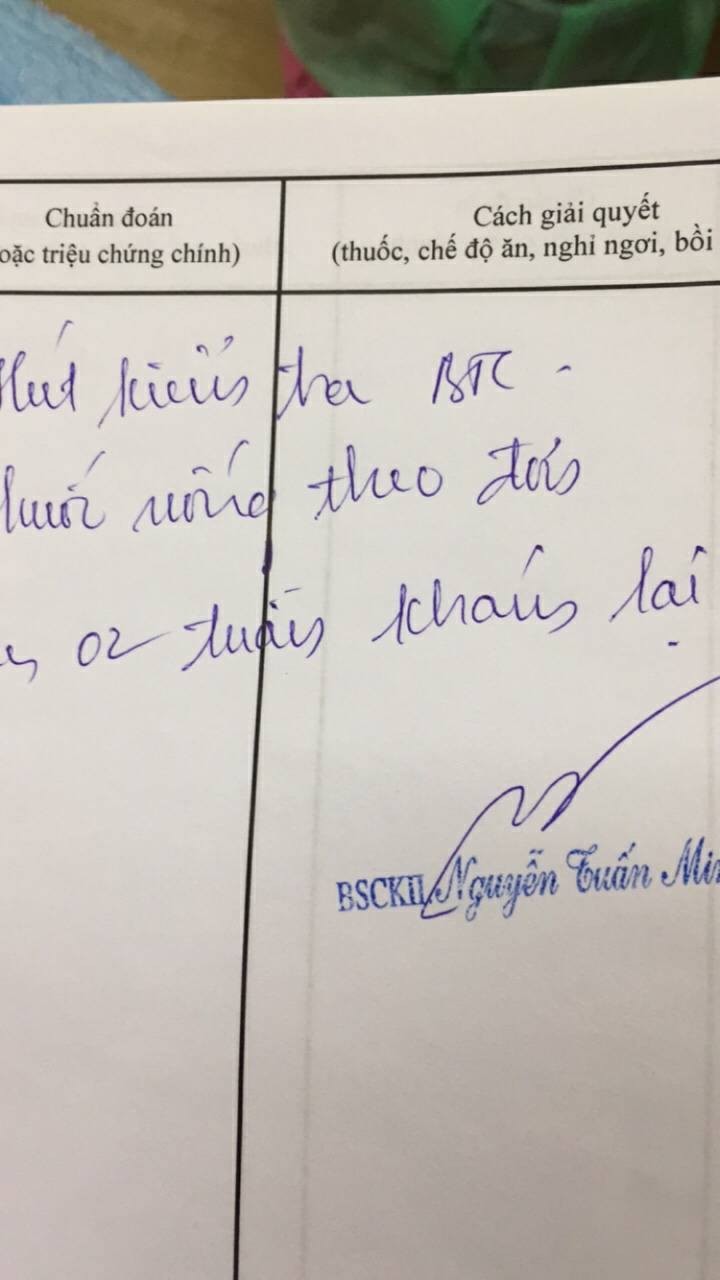 Chuẩn đoán
oặc triệu chứng chính)
Cách giải quyết
(thuốc, chế độ ăn, nghỉ ngơi, bồi
Hút kiểm tra BTC -
uống theo dõi
02 tuần khám lại
BSCKII Nguyễn Tuấn Min